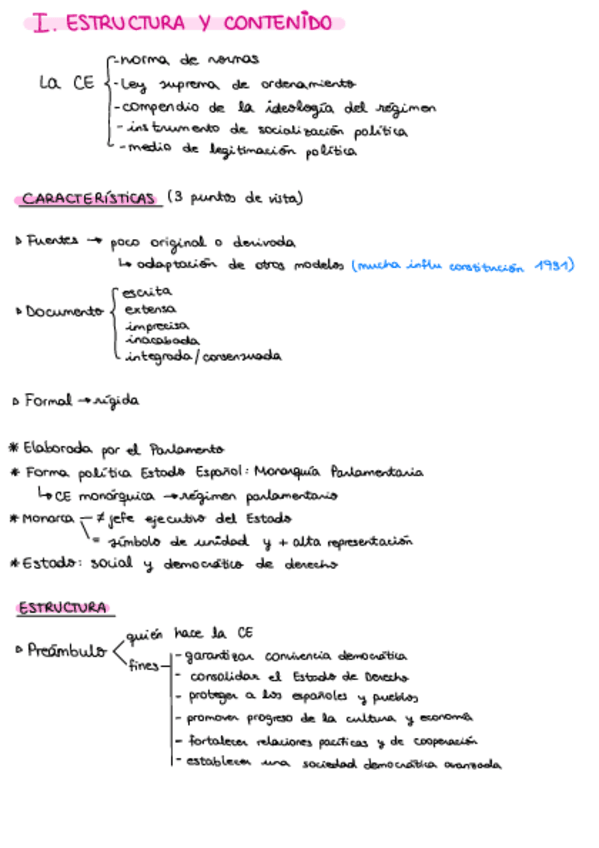 I. ESTRUCTURA Y CONTENIDO
La CE
- norma de normas
- Ley suprema de ordenamiento
- compendio de la ideología del régimen
- instrumento de socialización política
- medio de legitimación política
CARACTERÍSTICAS (3 puntos de vista)
▷ Fuentes → poco original o derivada
↳ adaptación de otros modelos (mucha influ constitución 1931)
▷ Documento
escrita
extensa
imprecisa
inacabada
integrada/consensuada
▷ Formal → rígida
* Elaborada por el Parlamento
* Forma política Estado Español: Monarquía Parlamentaria
↳ CE monárquica → régimen parlamentario
* Monarca — ≠ jefe ejecutivo del Estado
= símbolo de unidad y + alta representación
* Estado: social y democrático de derecho
ESTRUCTURA
▷ Preámbulo
quién hace la CE
fines
- garantizar convivencia democrática
- consolidar el Estado de Derecho
- proteger a los españoles y pueblos
- promover progreso de la cultura y economía
- fortalecer relaciones pacíficas y de cooperación
- establecer una sociedad democrática avanzada